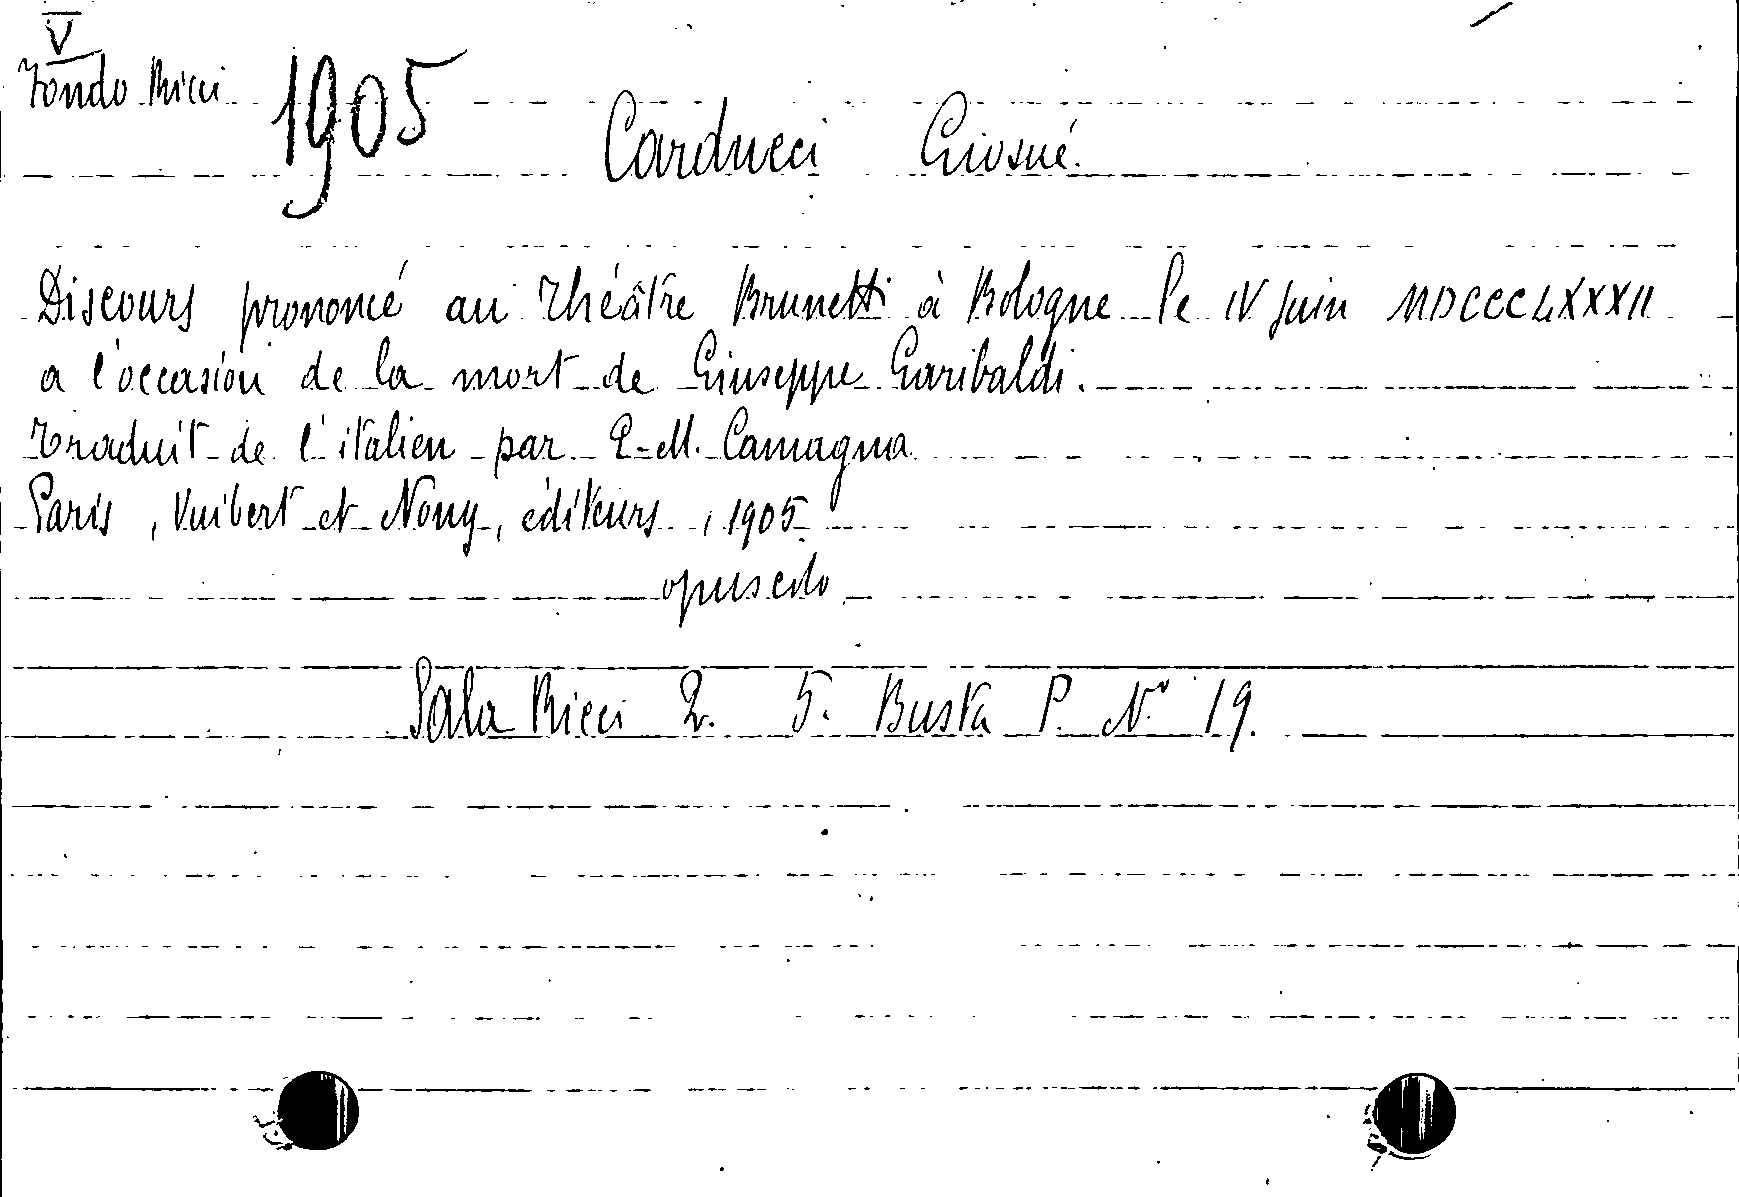 V
Fondo Ricci 1905
Carducci Giosué.
Discours prononcé au Théâtre Brunetti à Bologne le IV Juin MDCCCLXXXII
a l'occasion de la mort de Giuseppe Garibaldi.
Traduit de l'italien par E.-M. Camagna
Paris, Vuibert et Nony, éditeurs, 1905
opuscolo
Sala Ricci 2. 5. Busta P. N° 19.